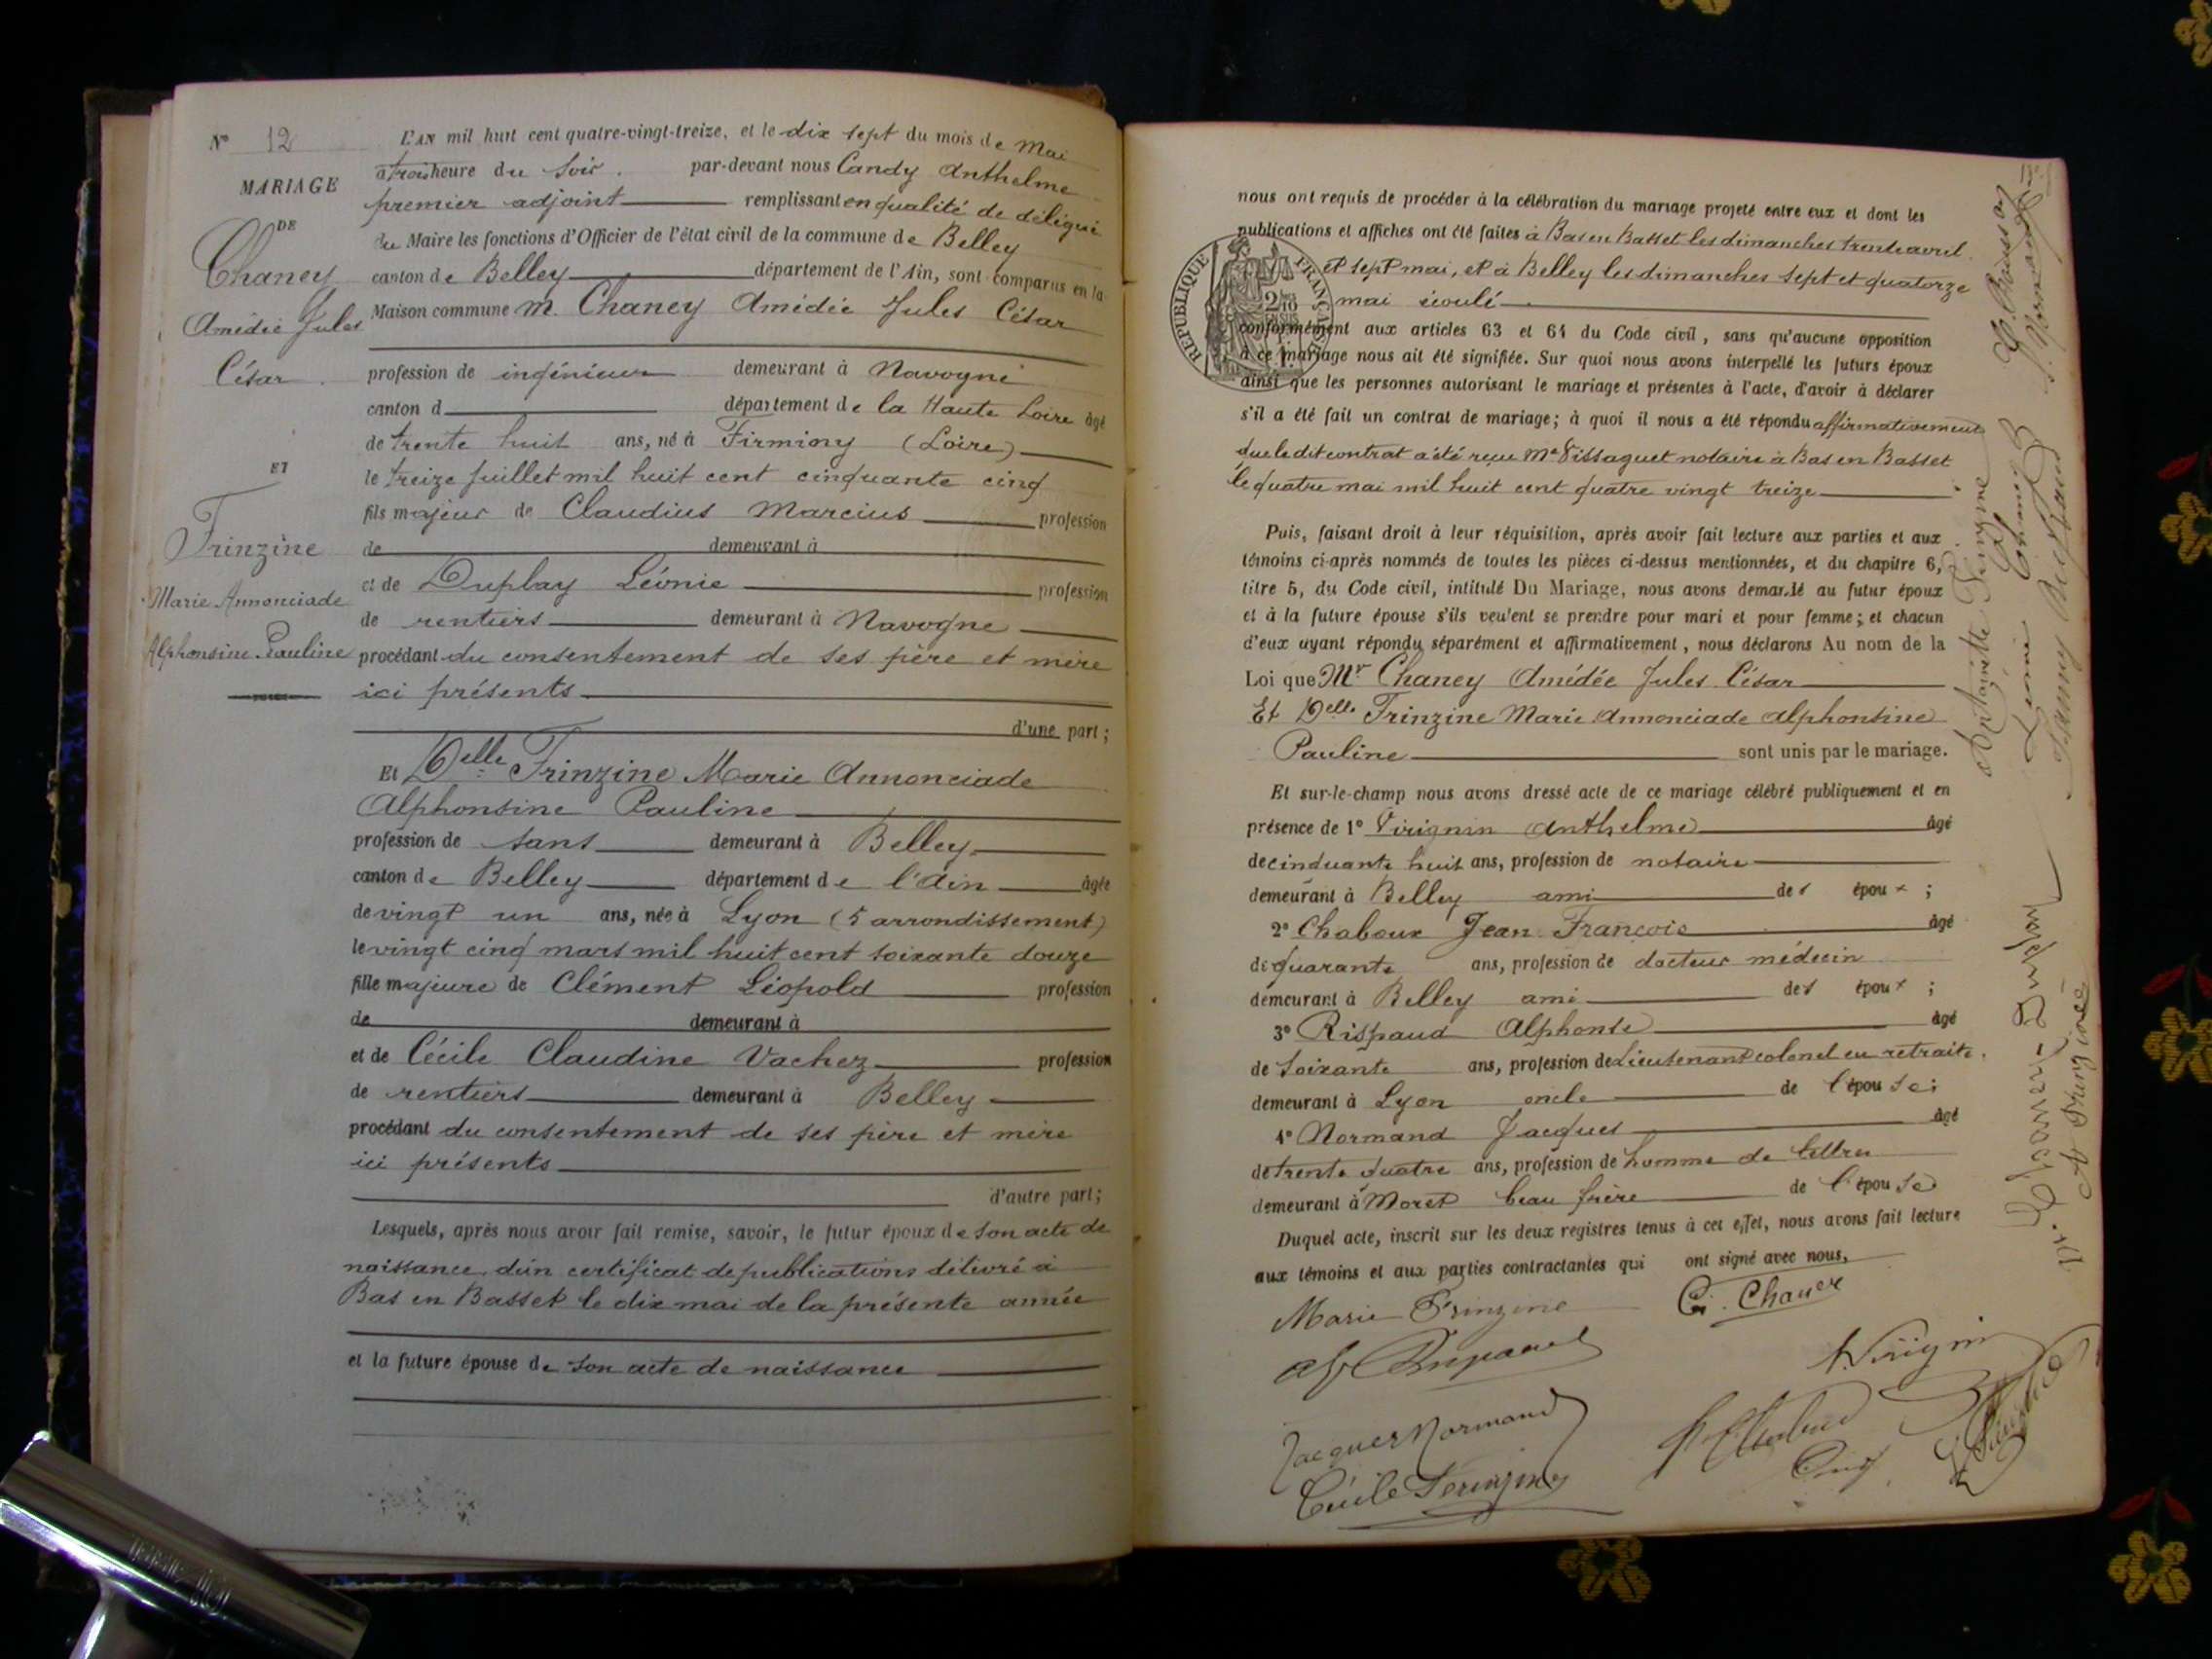 N° 12
MARIAGE
DE
Chaney
Amédée Jules
César
ET
Frinzine
Marie Annonciade
Alphonsine Pauline
L'AN mil huit cent quatre-vingt-treize, et le dix sept du mois de Mai
à trois heure du Soir. par-devant nous Candy Anthelme
premier adjoint remplissant en qualité de délégué
du Maire les fonctions d'Officier de l'état civil de la commune de Belley
canton de Belley département de l'Ain, sont comparus en la
Maison commune M. Chaney Amédée Jules César
profession de ingénieur demeurant à Navogne
canton d département de la Haute Loire âgé
de trente huit ans, né à Firminy (Loire)
le treize juillet mil huit cent cinquante cinq
fils majeur de Claudius Marcius profession
de demeurant à
et de Duplay Léonie profession
de rentiers demeurant à Navogne
procédant du consentement de ses père et mère
ici présents
d'une part;
Et Delle Frinzine Marie Annonciade
Alphonsine Pauline
profession de sans demeurant à Belley
canton de Belley département de l'Ain âgée
de vingt un ans, née à Lyon (5 arrondissement)
le vingt cinq mars mil huit cent soixante douze
fille majeure de Clément Léopold profession
de demeurant à
et de Cécile Claudine Vachez profession
de rentiers demeurant à Belley
procédant du consentement de ses père et mère
ici présents
d'autre part;
Lesquels, après nous avoir fait remise, savoir, le futur époux de son acte de
naissance, d'un certificat de publications délivré à
Bas en Basset le dix mai de la présente année
et la future épouse de son acte de naissance
nous ont requis de procéder à la célébration du mariage projeté entre eux et dont les
publications et affiches ont été faites à Bas en Basset les dimanches trente avril
et sept mai, et à Belley les dimanches sept et quatorze
mai écoulé
RÉPUBLIQUE FRANÇAISE
conformément aux articles 63 et 64 du Code civil, sans qu'aucune opposition
à ce mariage nous ait été signifiée. Sur quoi nous avons interpellé les futurs époux
ainsi que les personnes autorisant le mariage et présentes à l'acte, d'avoir à déclarer
s'il a été fait un contrat de mariage; à quoi il nous a été répondu affirmativement
que le dit contrat a été reçu Me Vissaguet notaire à Bas en Basset
le quatre mai mil huit cent quatre vingt treize
Puis, faisant droit à leur réquisition, après avoir fait lecture aux parties et aux
témoins ci-après nommés de toutes les pièces ci-dessus mentionnées, et du chapitre 6,
titre 5, du Code civil, intitulé Du Mariage, nous avons demandé au futur époux
et à la future épouse s'ils veulent se prendre pour mari et pour femme; et chacun
d'eux ayant répondu séparément et affirmativement, nous déclarons Au nom de la
Loi que Mr Chaney Amédée Jules César
Et Delle Frinzine Marie Annonciade Alphonsine
Pauline sont unis par le mariage.
Et sur-le-champ nous avons dressé acte de ce mariage célébré publiquement et en
présence de 1° Virignin Anthelme âgé
de cinquante huit ans, profession de notaire
demeurant à Belley ami des époux ;
2° Chaboux Jean François âgé
de quarante ans, profession de docteur médecin
demeurant à Belley ami des époux ;
3° Rispaud Alphonse âgé
de soixante ans, profession de Lieutenant colonel en retraite.
demeurant à Lyon oncle de l'épouse;
4° Normand Jacques âgé
de trente quatre ans, profession de homme de lettres
demeurant à Moret beau frère de l'épouse
Duquel acte, inscrit sur les deux registres tenus à cet effet, nous avons fait lecture
aux témoins et aux parties contractantes qui ont signé avec nous,
Marie Frinzine
Jacques Normand
Cécile Frinzine